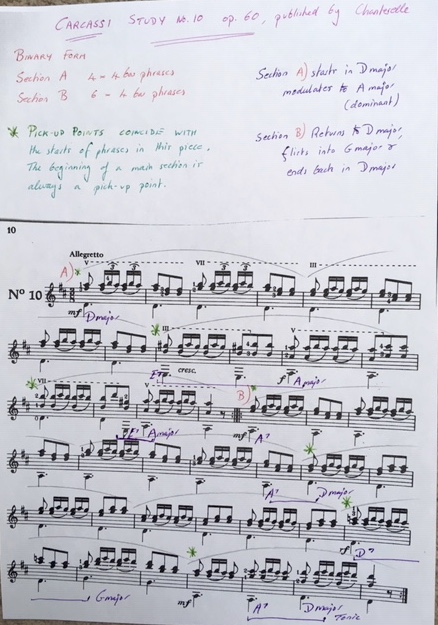 CARCASSI STUDY No. 10 op. 60, published by Chanterelle
BINARY FORM
Section A 4 – 4 bar phrases
Section B 6 – 4 bar phrases
Section A) starts in D major
modulates to A major
(dominant)
* PICK-UP POINTS COINCIDE WITH
the starts of phrases in this piece.
The beginning of a main section is
always a pick-up point.
Section B) Returns to D major,
flirts into G major &
ends back in D major
10
Allegretto
A) *
V
VII
III
Nº 10
mf
D major
* III
V
cresc.
f
A major
*
VII
V
B) *
A major
mf
A7
*
A7
D major
*
sf
D7
*
G major
mf
A7
D major
Tonic